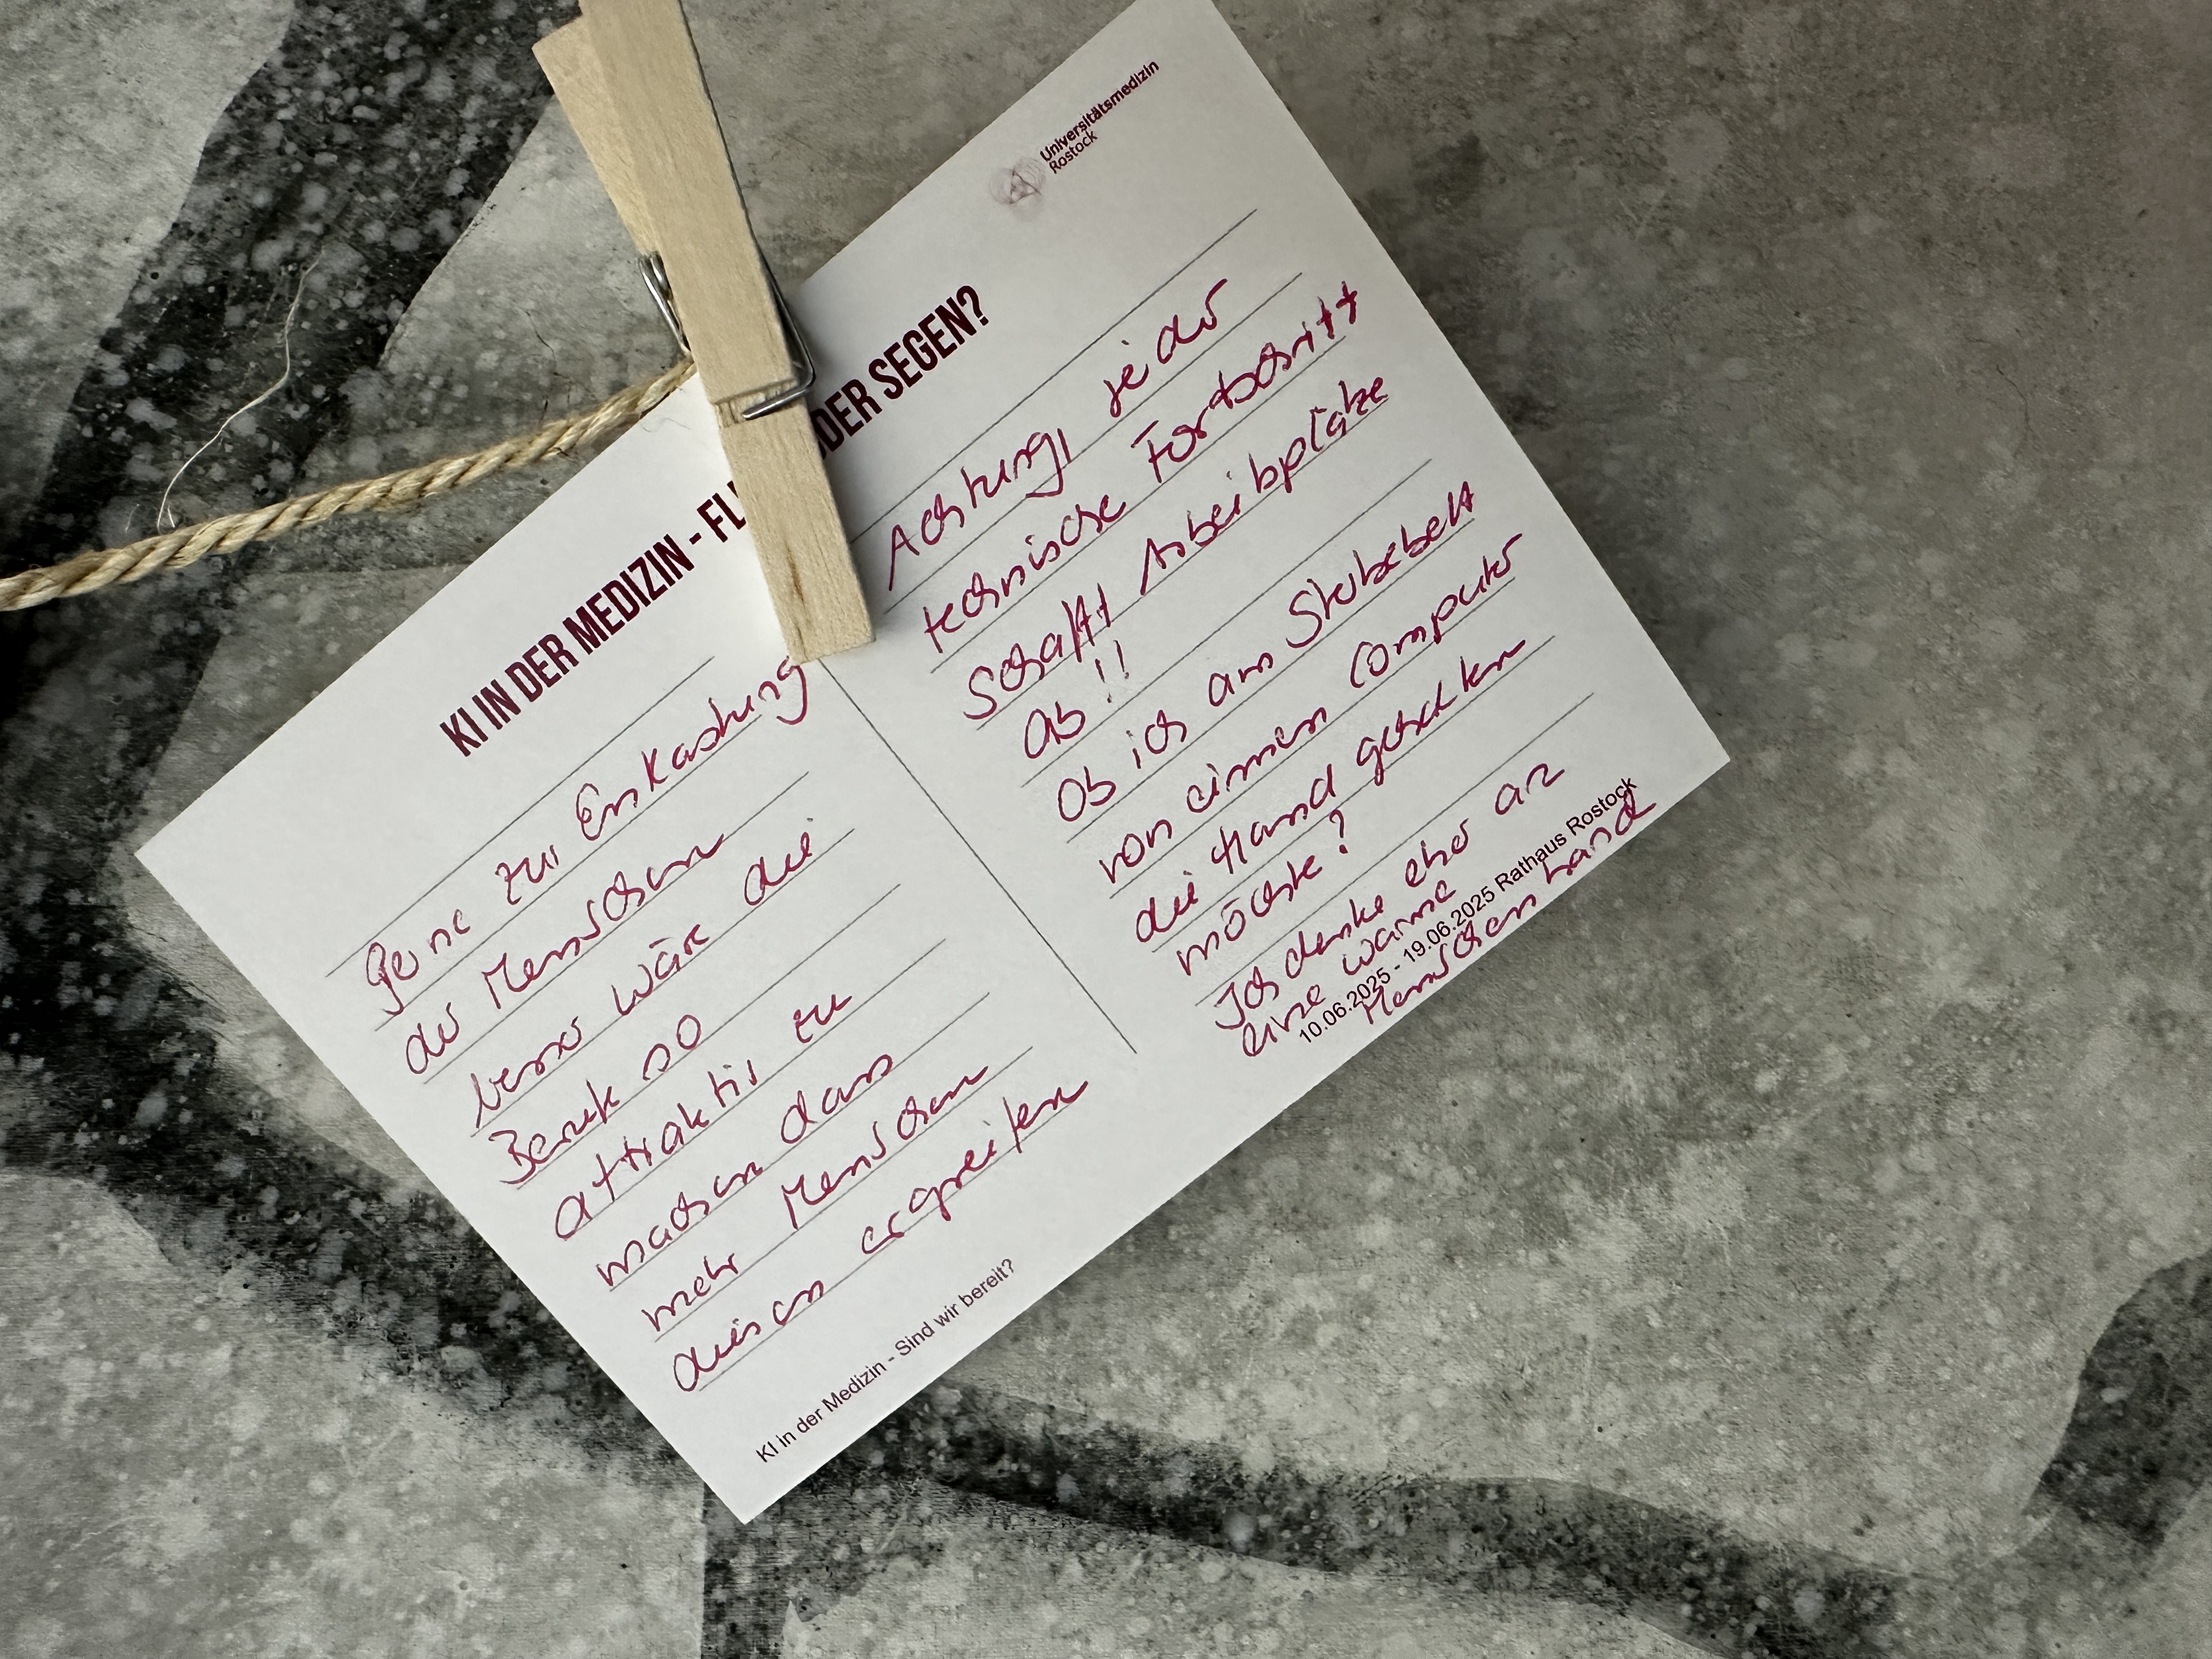 Universitätsmedizin
Rostock
KI IN DER MEDIZIN - FL
DER SEGEN?
gerne zur Entlastung
der Menschen
besser wäre die
Berufe so
attraktiv zu
machen dass
mehr Menschen
diesen ergreifen
Achtung, jeder
technische Fortschritt
Schafft Arbeitsplätze
ab!!
Ob ich am Sterbebett
von einem Computer
die Hand gehalten
möchte?
Ich denke eher an
eine warme
Menschen Hand
KI in der Medizin - Sind wir bereit?
10.06.2025 - 19.06.2025 Rathaus Rostock